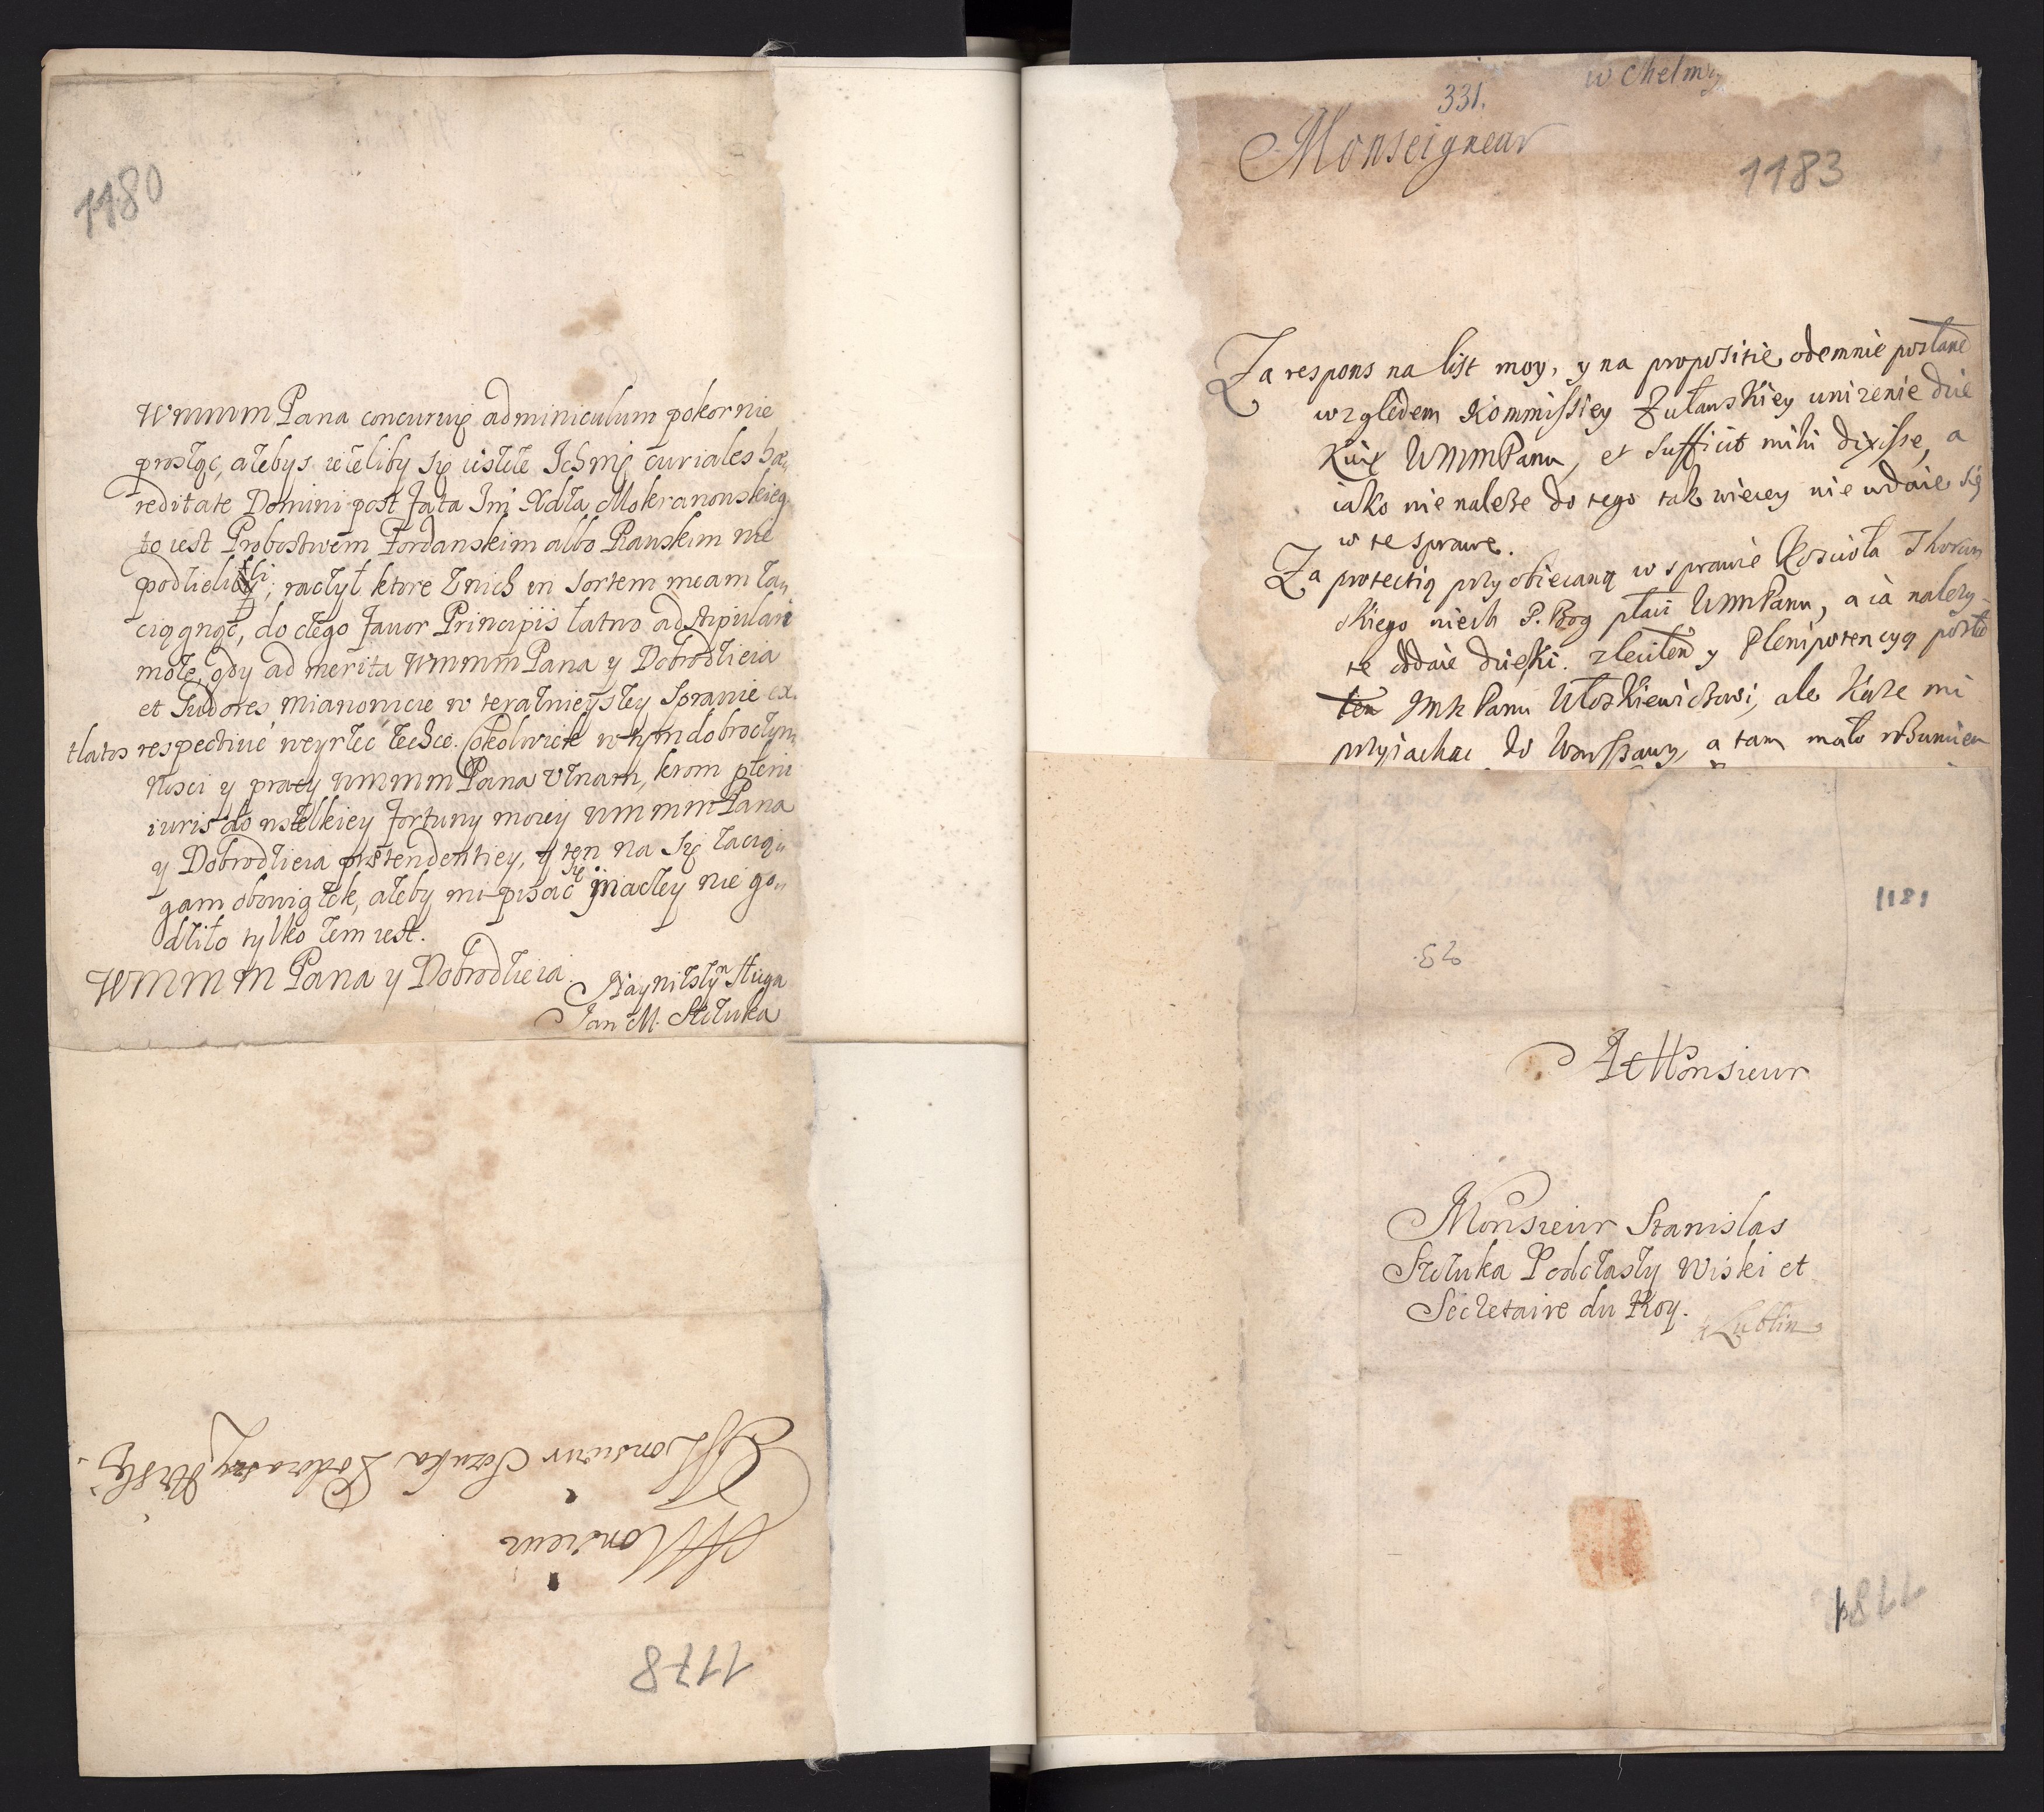 1180
WMMM Pana concuruię adminiculum pokornie
prosząc, ażebys ieżeliby się ieszcze Ichmę curiales hæ„
reditate Domini post fata Im Xdza Mokranowskieg
to iest Probostwem Fordanskim albo Rawskim nie
podzielili; raczył ktore z nich in sortem meam za„
ciągnąć, do czego favor Principis łatwo adstipulari
może, gdy ad merita WMMM Pana y Dobrodzieia
et Sudores mianowicie w terazniejszey Sprawie ex.
tlatos respective weyrzeć zechce. Cokolwiek w tym dobroczyn„
nosci y pracy WMMM Pana uznam, krom pleni
iuris do wszelkiey fortuny moiey WMMM Pana
y Dobrodzieia prætendentiey, y ten na się zaciąg„
gam obowiązek, ażeby mi się pisać inaczey nie go„
dziło tylko żem iest.
WMMM Pana y Dobrodzieia.
Nayniższym sługa
Jan M. Szczuka
A Monsieur
Monsieur Szczuka Podczaszy Wiski.
1178
331.
w Chelmży
Monseigneur
1183
Za respons na list moy, y na propositie odemnie posłane
względem Kommissiey Żuławskiey unizenie dzie
kuię WMMPanu, et sufficit mihi dixisse, a
iako nie należe do tego tak wiecey nie wdaie się
w te sprawe.
Za protectią przyobiecaną w sprawie Koscioła Thorun
skiego niech P. Bog płaci WMMPanu, a ia należy„
te oddaie dzięki. zleciłem y Plenipotencyą posłe
łem JMP Panu Utoskiewiczowi, ale każe mi
przyiachac do Warszawy, a tam mało rozumiem
1181
53.
A Monsieur
Monsieur Stanislas
Szczuka Podczaszy Wiski et
Secretaire du Roy.
à Lublin
1184